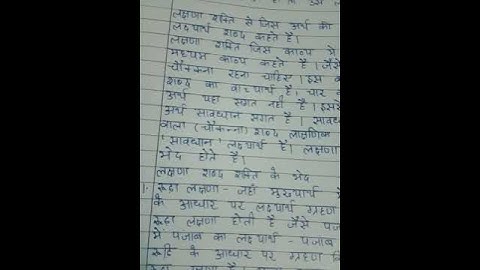 लक्षणा शक्ति से जिस अर्थ की
लक्ष्यार्थ शब्द कहते है।
लक्षणा शक्ति जिस काव्य में
मध्यम काव्य कहते है। जैसे
चौकन्ना रहना चाहिए। इस
शब्द का वाच्यार्थ है। चार
अर्थ यहा संगत नही है। इससे
अर्थ सावधान संगत है।
वाला (चौकन्ना) शब्द लाक्षणिक
'सावधान' लक्ष्यार्थ है। लक्षणा
भेद होते है।
लक्षणा शब्द शक्ति के भेद
1. रूढ़ा लक्षणा - जहाँ मुख्यार्थ
के आधार पर लक्ष्यार्थ ग्रहण
रूढ़ा लक्षणा होती है जैसे
में पंजाब का लक्ष्यार्थ - पंजाब
रूढ़ि के आधार पर ग्रहण